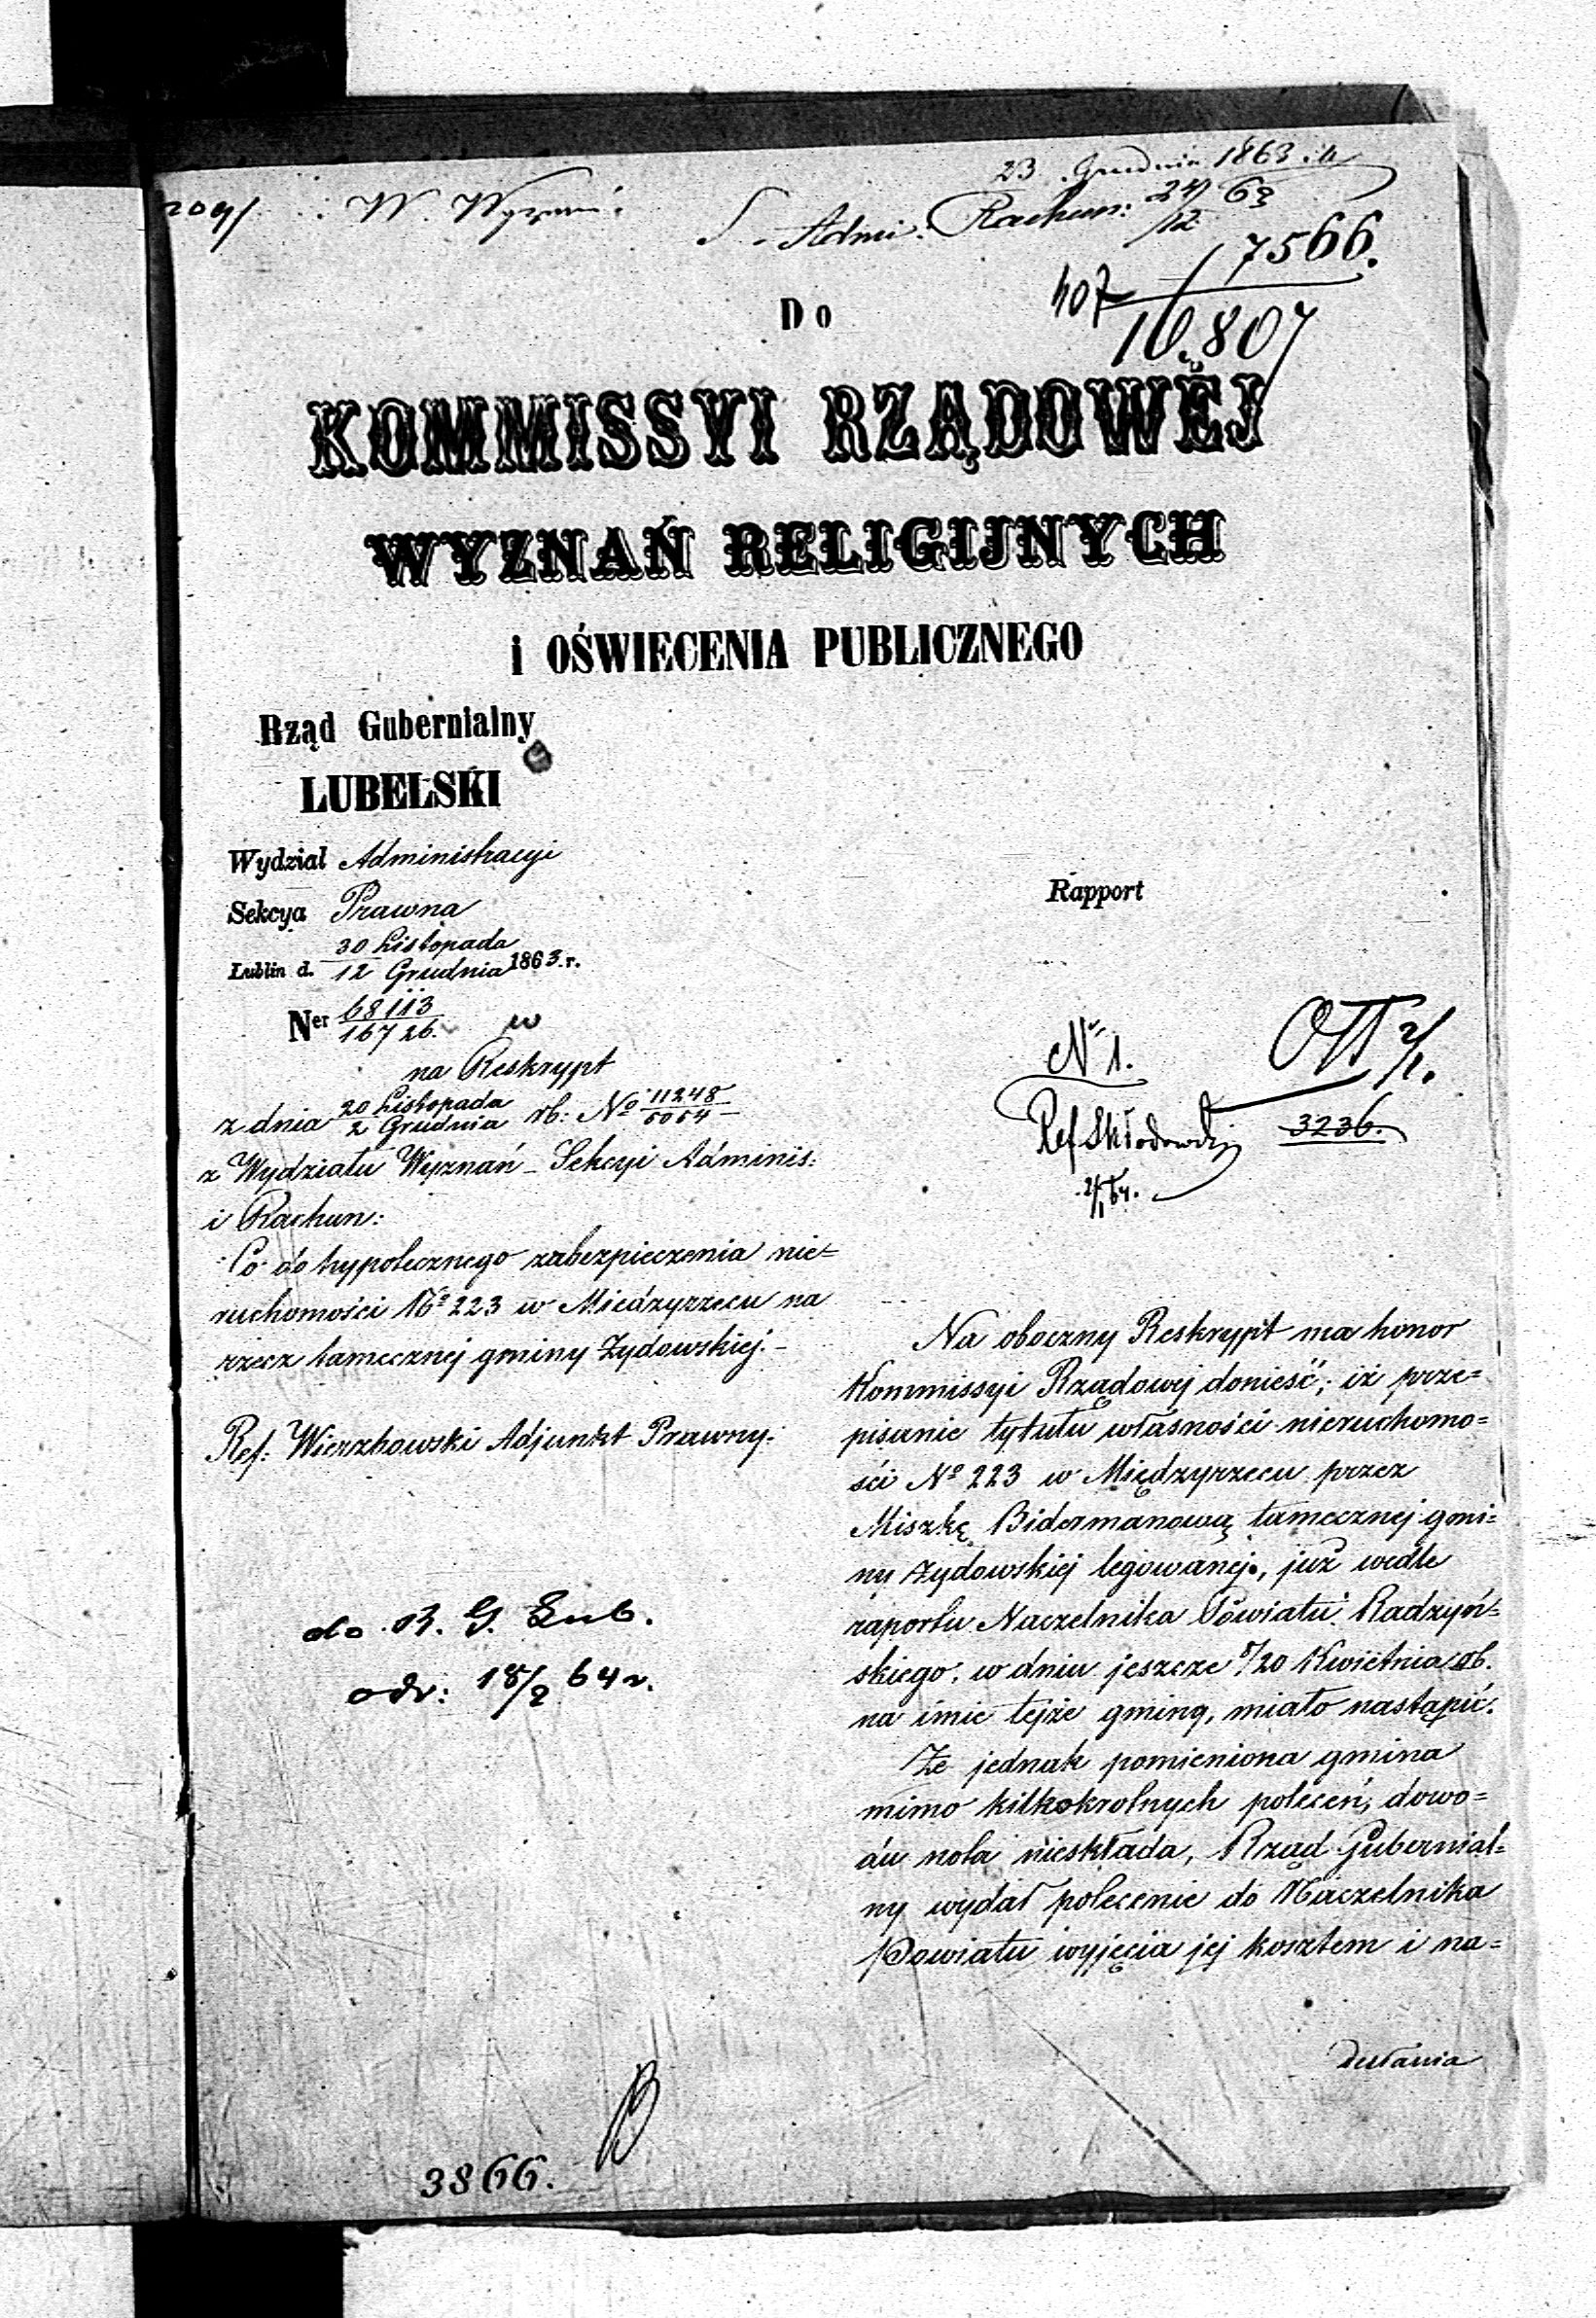 23 Grudnia 1863 r
W. Wyznań.
S. Admi: Rachun: 24/12 63
17566.
407
10.807
Do
KOMMISSYI RZĄDOWÉJ
WYZNAŃ RELIGIJNYCH
i OŚWIECENIA PUBLICZNEGO
Rząd Gubernialny
LUBELSKI
Wydział Administracyi
Sekcya Prawna
Lublin d. 30 Listopada / 12 Grudnia 1863.r.
Ner 68113 / 16726.
na Reskrypt
z dnia 20 Listopada / 2 Grudnia rb: No 11248 / 5054
z Wydziału Wyznań - Sekcyi Adminis:
i Rachun:
Co do hypotecznego zabezpieczenia nie=
ruchomości No 223 w Miedzyrzecu na
rzecz tamecznej gminy Żydowskiej.-
Ref: Wierzbowski Adjunkt Prawny.
do R. G. Lub.
odr: 18/2 64 r.
3866.
Rapport
N 1.
Ref Skłodowski
2/1 64.
3236.
Na oboczny Reskrypt ma honor
Kommissyi Rządowej donieść, iż prze=
pisanie tytułu własności nieruchomo=
ści No 223 w Międzyrzecu przez
Miszkę Bidermanową tamecznej gmi=
ny żydowskiej legowanej, już wedle
raportu Naczelnika Powiatu Radzyń=
skiego, w dniu jeszcze 8/20 Kwietnia rb.
na imie tejże gminy, miało nastąpić.
Że jednak pomieniona gmina
mimo kilkokrotnych poleceń, dowo=
du nota nieskłada, Rząd Gubernial=
ny wydał polecenie do Naczelnika
Powiatu wyjęcia jej kosztem i na=
desłania